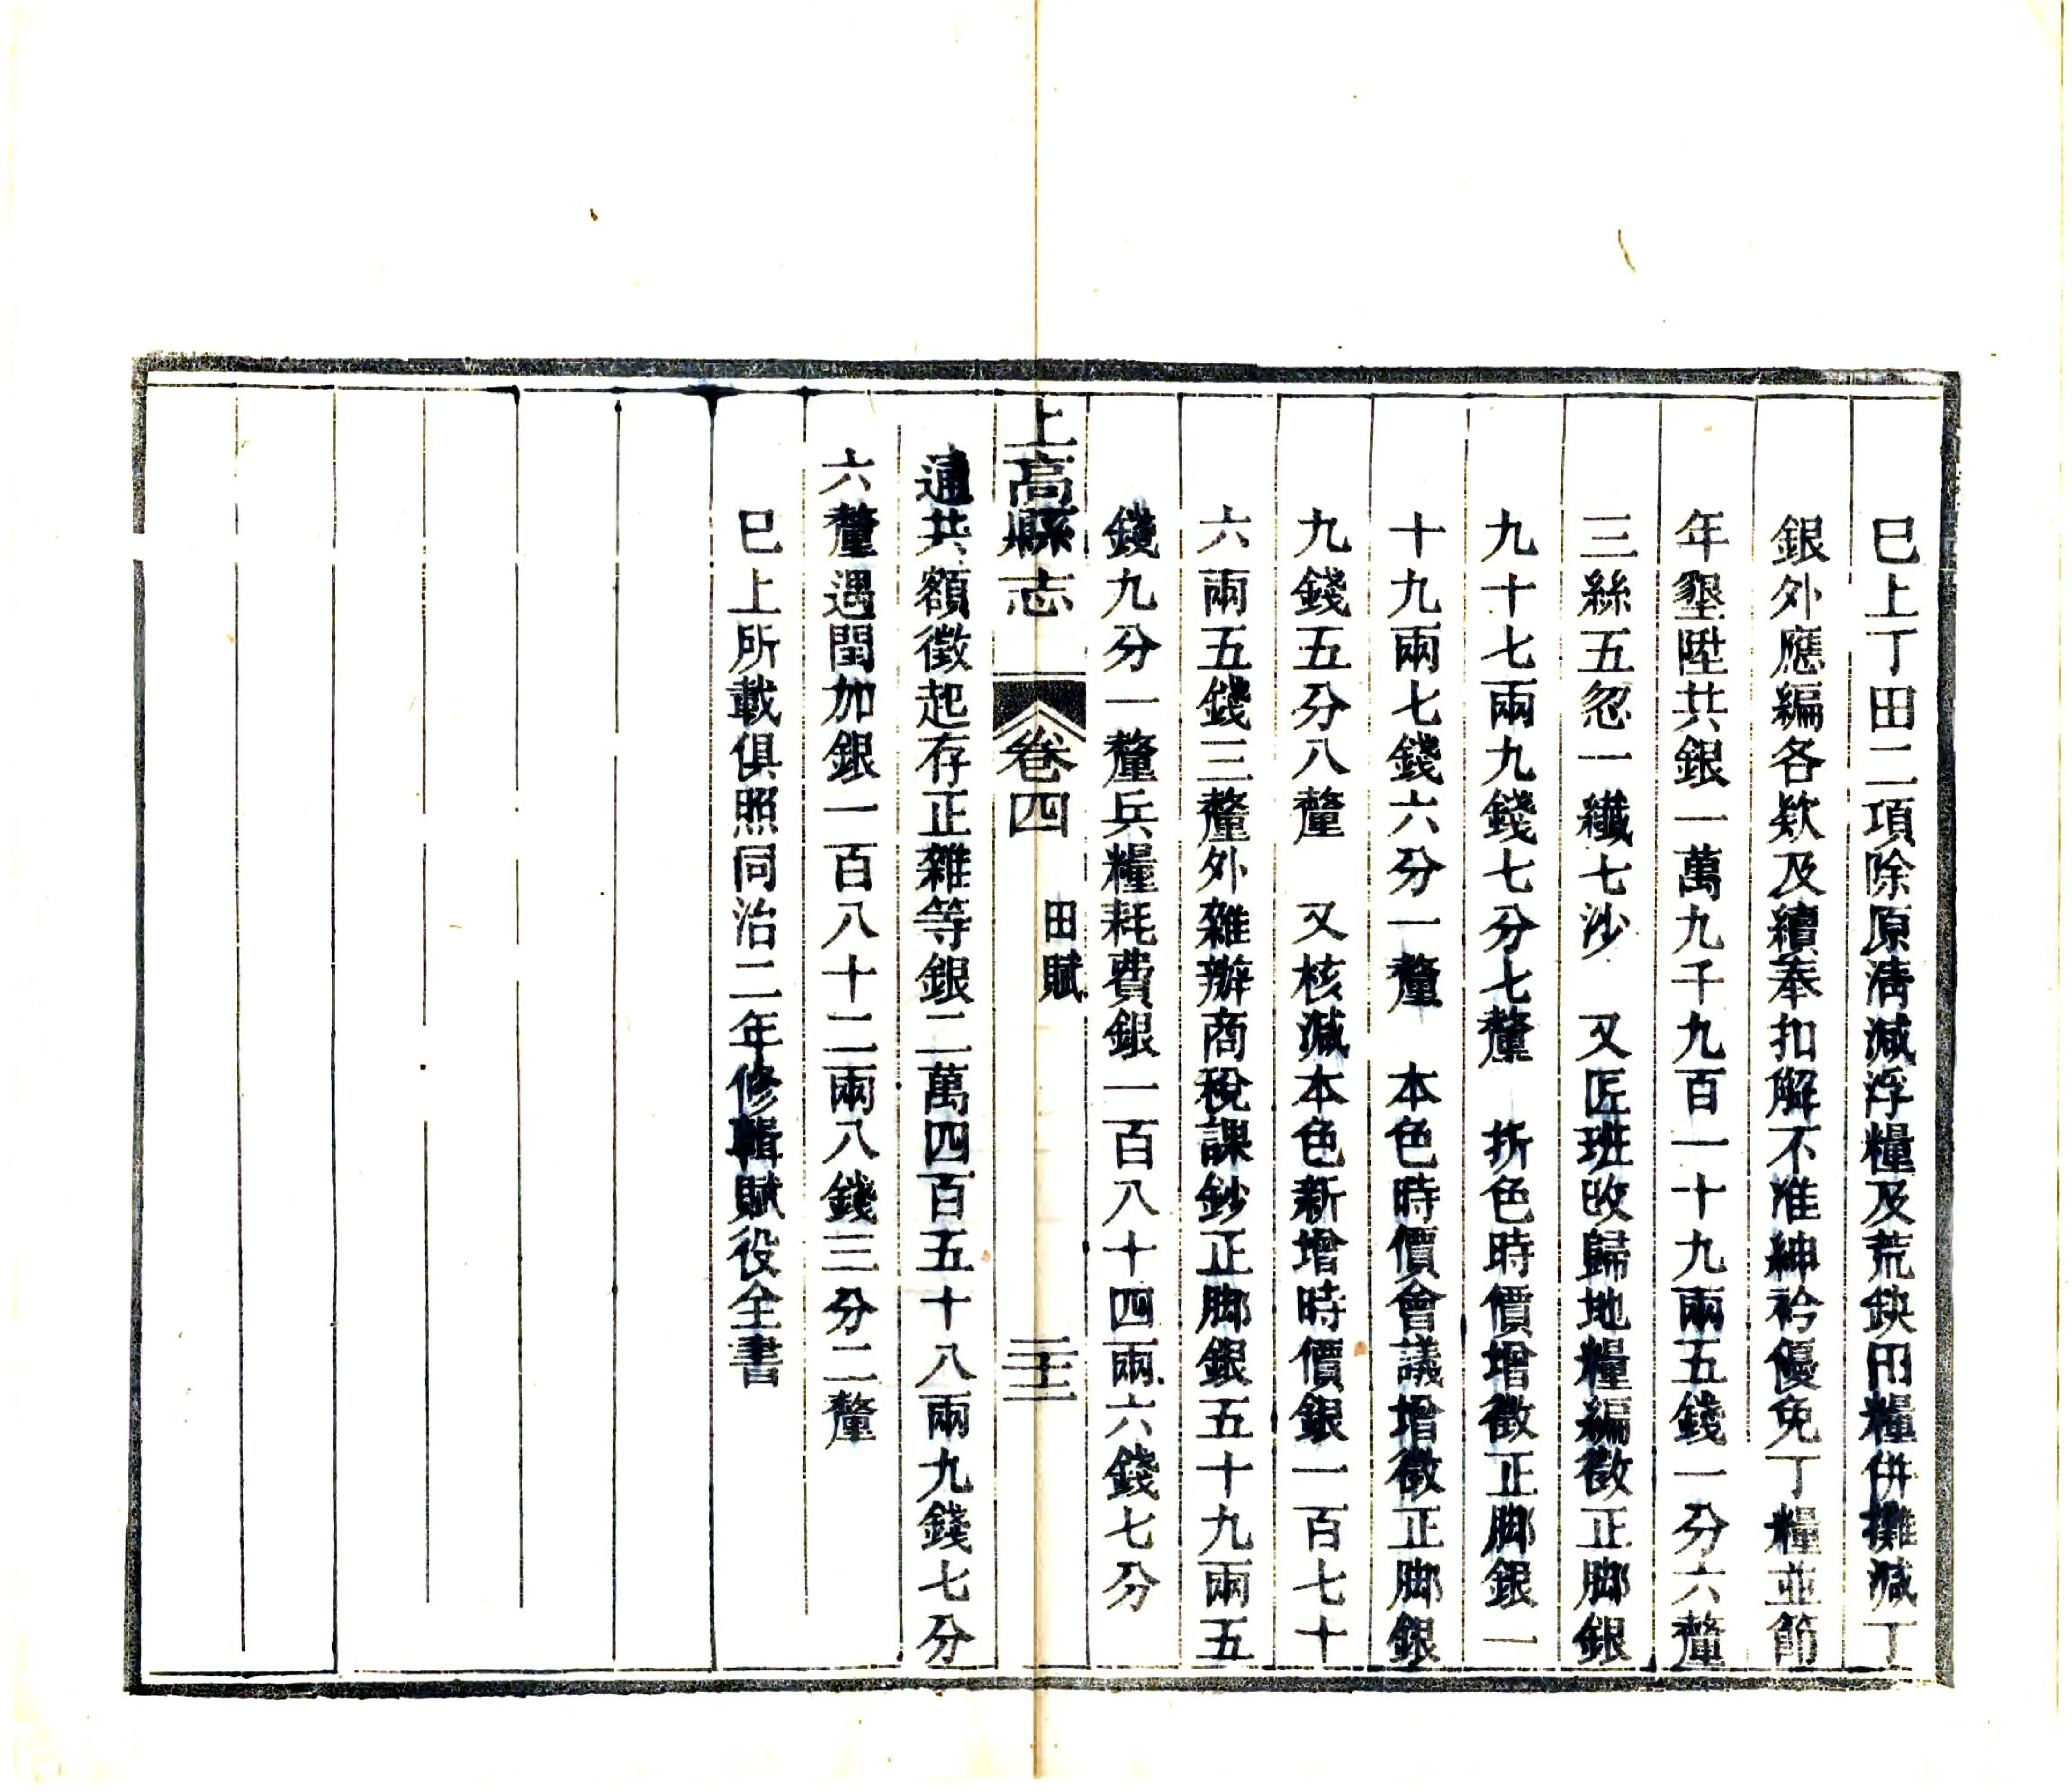 巳上丁田二項除原淸減浮糧及荒缺田糧併攤減丁
銀外應編各欵及續奉扣解不准紳衿優免丁糧並節
年墾陞共銀一萬九千九百一十九兩五錢一分六釐
三絲五忽一纖七沙　又匠班改歸地糧編徵正脚銀
九十七兩九錢七分七釐　折色時價增徵正脚銀一
十九兩七錢六分一釐　本色時價會議增徵正脚銀
九錢五分八釐　又核減本色新增時價銀一百七十
六兩五錢三釐外雜辦商稅課鈔正脚銀五十九兩五
錢九分一釐兵糧耗費銀一百八十四兩六錢七分
上高縣志　卷四　田賦　三十三
通共額徵起存正雜等銀二萬四百五十八兩九錢七分
六釐遇閏加銀一百八十二兩八錢三分二釐
巳上所載俱照同治二年修輯賦役全書